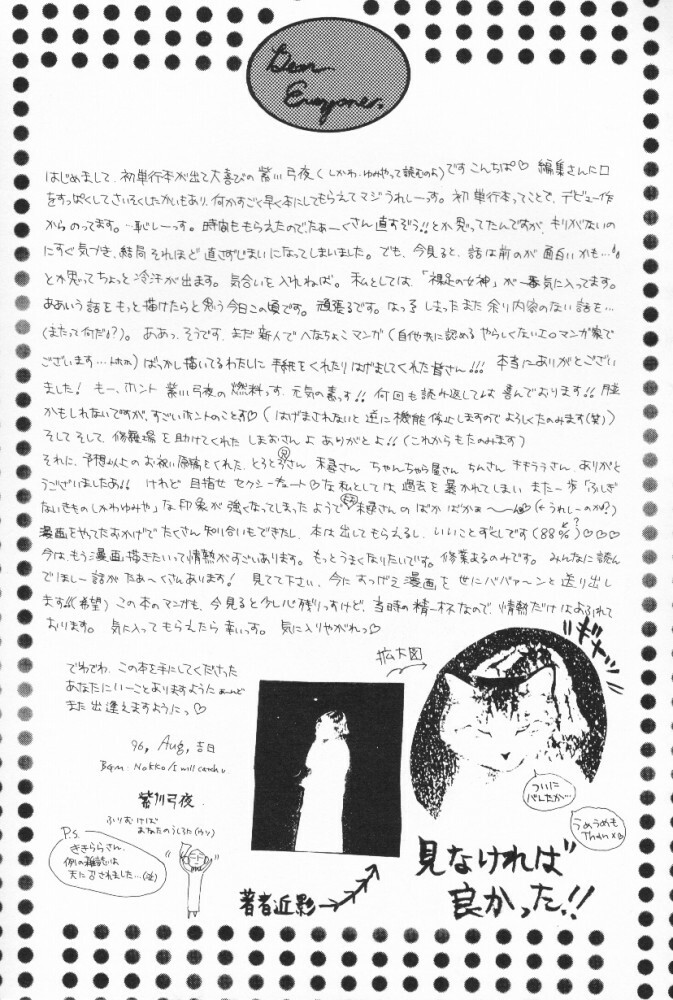 Dear
Everyone.
はじめまして、初単行本が出て大喜びの紫川弓夜(しかわゆみやって読むのよ)ですこんちぱ♡ 編集さんに口
をすっぱくしてさいそくしたかいもあり、何かすごく早く本にしてもらえてマジうれしーっす。初単行本ってことで、デビュー作
からのってます。恥しーっす。時間ももらえたのでたぁ〜くさん直すぞう!!とか思ってたんですが、キリがないの
にすぐ気づき、結局それほど直さずじまいになってしまいました。でも、今見ると、話は前のが面白いかも…
とか思ってちょっと冷汗が出ます。気合いを入れねば。私としては、「裸足の女神」が一番気に入ってます。
ああいう話をもっと描けたらと思う今日この頃です。頑張るです。はっ しまったまた余り内容のない話を…
(またって何だ?)。ああっ、そうです、まだ新人でへなちょこマンガ(自他共に認めるやらしくないエロマンガ家で
ございます…トホホ)ばっかし描いてるわたしに手紙をくれたりはげましてくれた皆さん!!! 本当にありがとござい
ました! もー、ホント 紫川弓夜の燃料っす、元気の素っす!! 何回も読み返しては喜んでおります!!
かもしれないですが、すごいホントのことす♡(はげまされないと逆に機能停止しますのでよろしくたのみます(笑))
そしてそして、修羅場を助けてくれた しまおさんよ ありがとよ!!(これからもたのみます)
それに、予想以上のお祝い原稿をくれた、とろろさん 木尋さん ちゃんちゃら屋さん ちんさん キキララさん、ありがと
うございましたぁ!! けれど 目指せ セクシーキュート♡な私としては過去を暴かれてしまい また一歩「ふしぎ
ないきものしかわゆみや」な印象が強くなってしまったようで 木尋さんのばか ばかぁ〜ん(←うれしーのか?)
漫画をやってたおかげでたくさん知り合いもできたし、本は出してもらえるし、いいことずくしです(88%)♡♡♡
?
今は、もう漫画描きたいって情熱がすごいあります。もっとうまくなりたいです。修業あるのみです。みんなに読ん
でほしー話がたぁ〜くさんあります! 見てて下さい、今にすっげえ漫画を世にババァ〜ンと送り出し
ます!!(希望) この本のマンガも、今見ると少し心残りっすけど、当時の精一杯なので、情熱だけはあふれて
おります。気に入ってもらえたら幸いっす。気に入りやがれっ♡
でわでわ、この本を手にしてくださった
あなたにいーことありますようた
また出逢えますようにっ♡
96, Aug, 吉日
BGM: Nokko/I will catch u
紫川弓夜
ふりむけば
あなたのうしろに(ウソ)
P.S.
ききららさん、
例の雑誌は
天に召されました…(泣)
拡大図
ギャー
ついに
バレたか…
うめうめも
Thanx
著者近影
見なければ
良かった!!